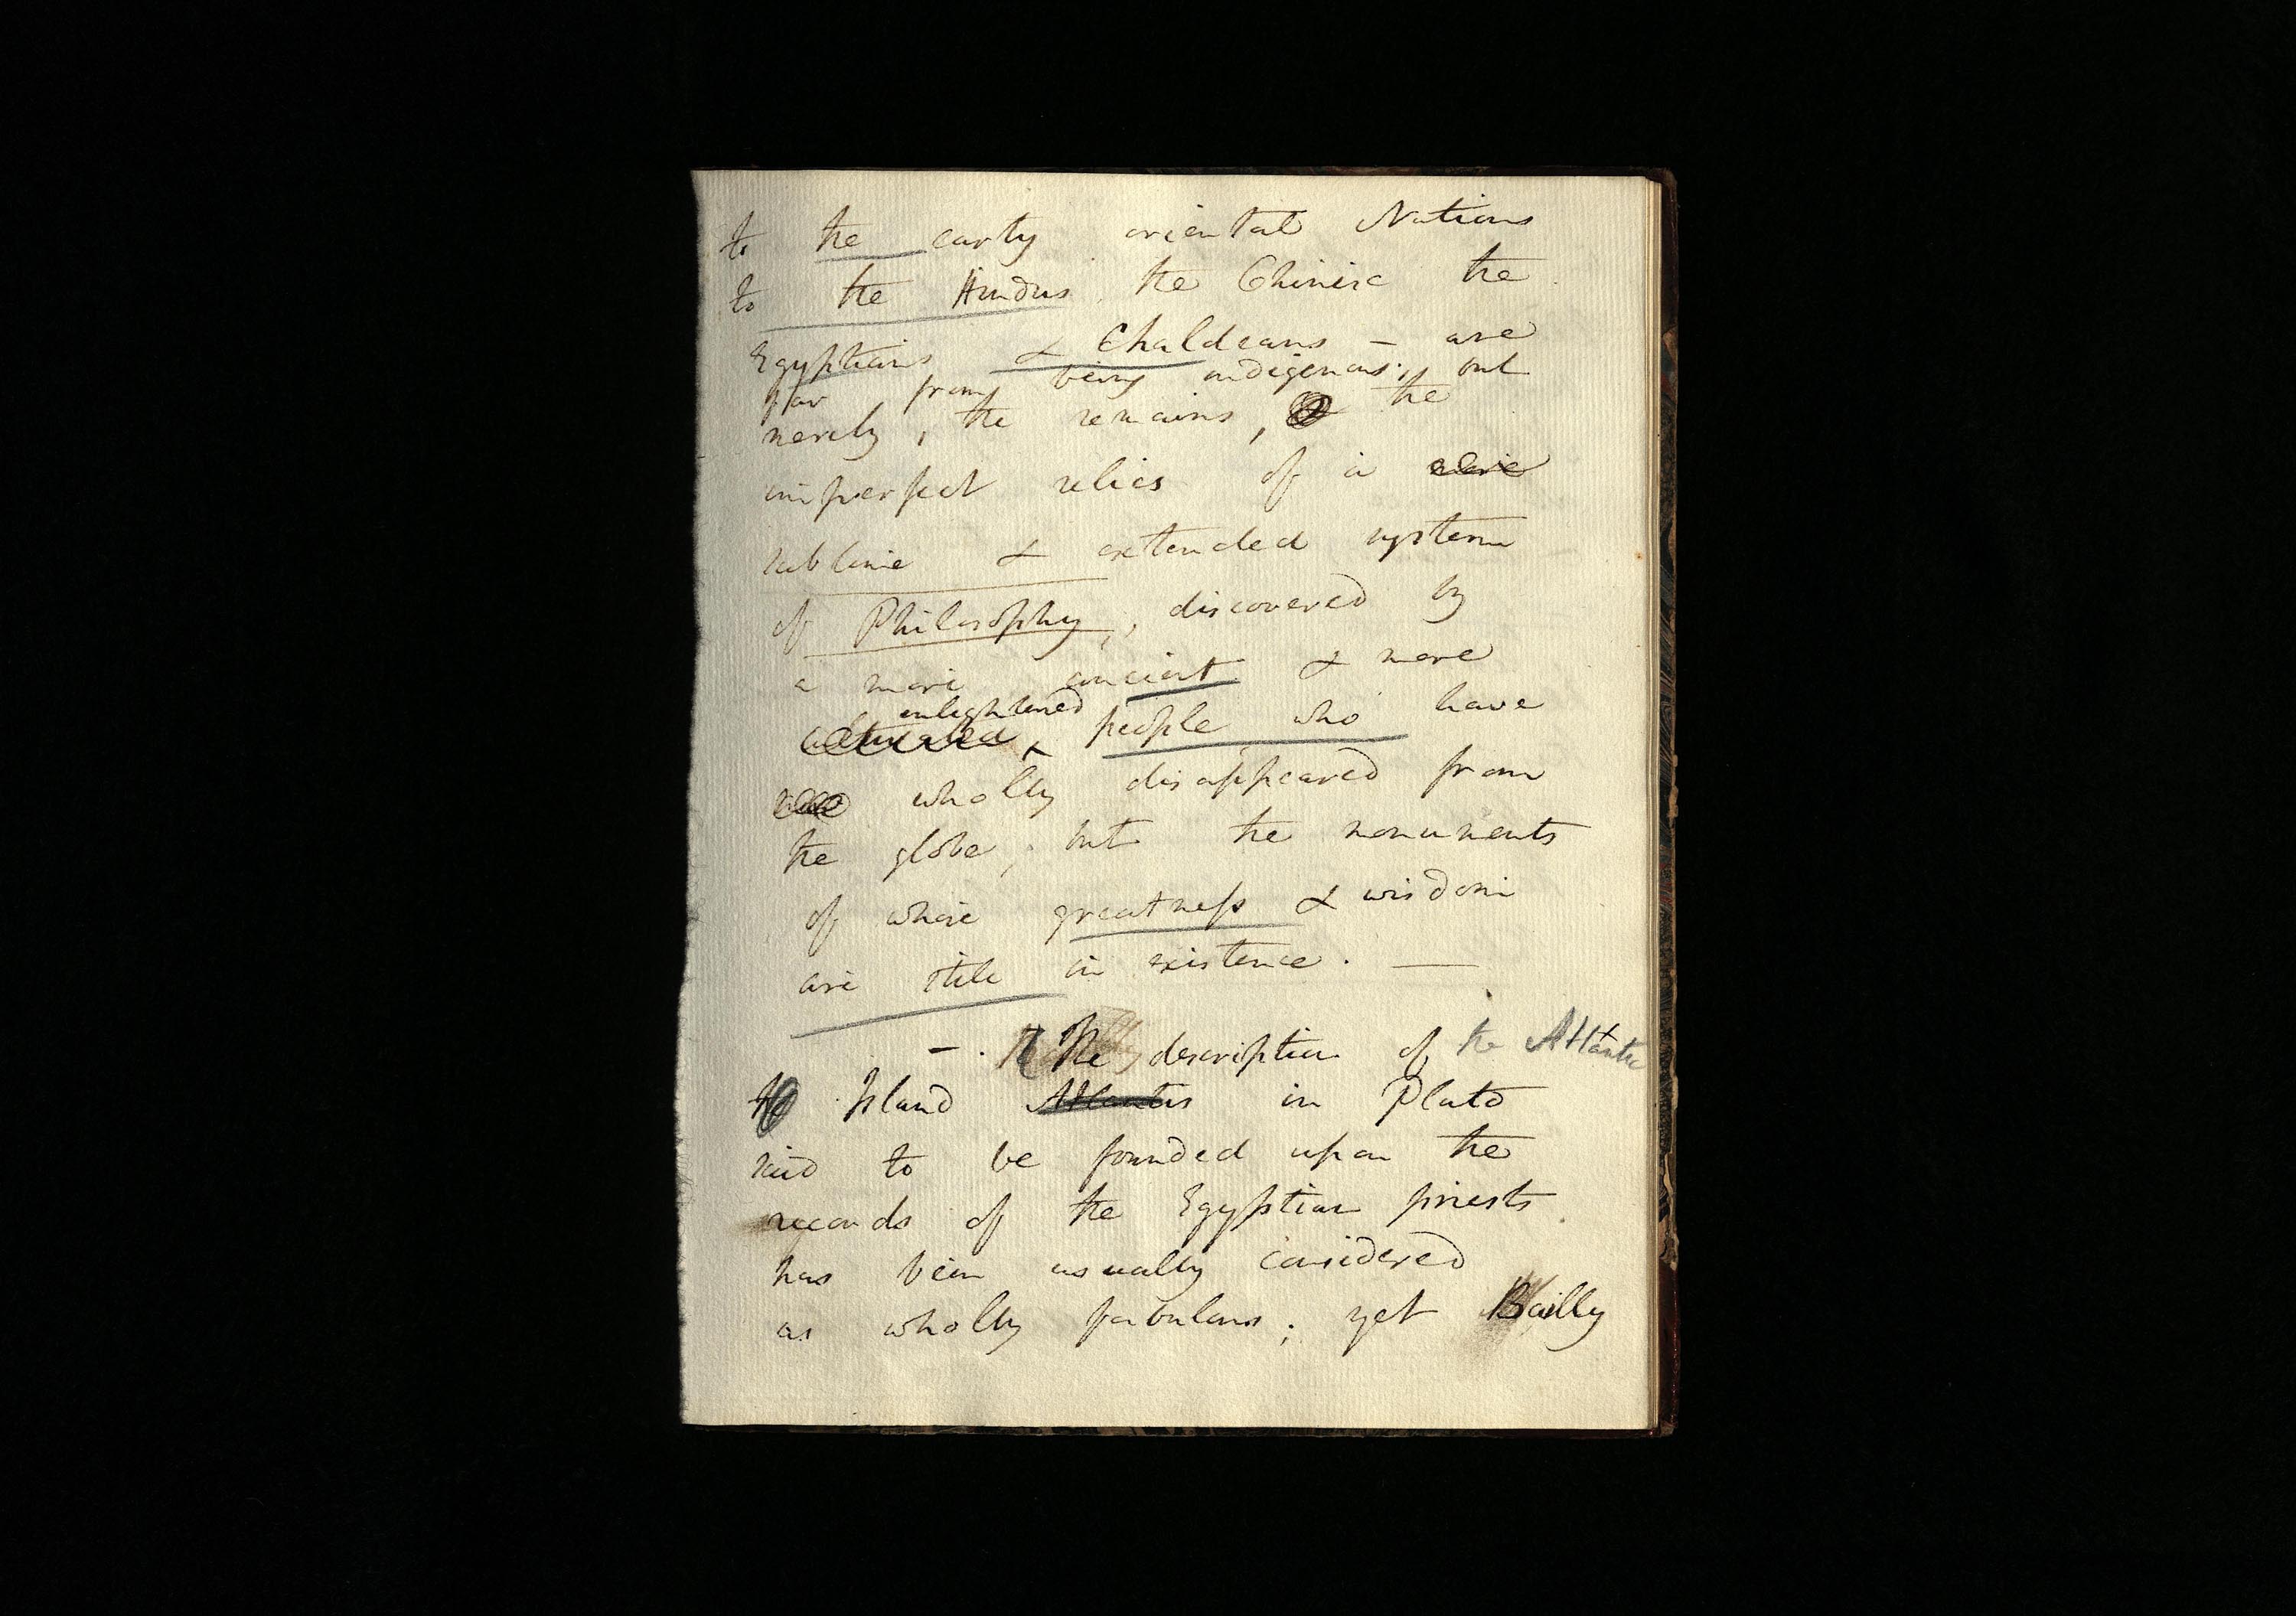 to the early oriental Nations
to the Hindus the Chinese the
Egyptians & Chaldeans – are
far from being indigenous, but
merely, the remains, the
imperfect relics of a
sublime & extended system
of Philosophy, discovered by
a more ancient & more
enlightened
cultivated people who have
wholly disappeared from
the globe; but the monuments
of whose greatness & wisdom
are still in existence. —
–. The description of the Atlantic
Island Atlantis in Plato
said to be founded upon the
records of the Egyptian priests
has been usually considered
as wholly fabulous; yet Bailly